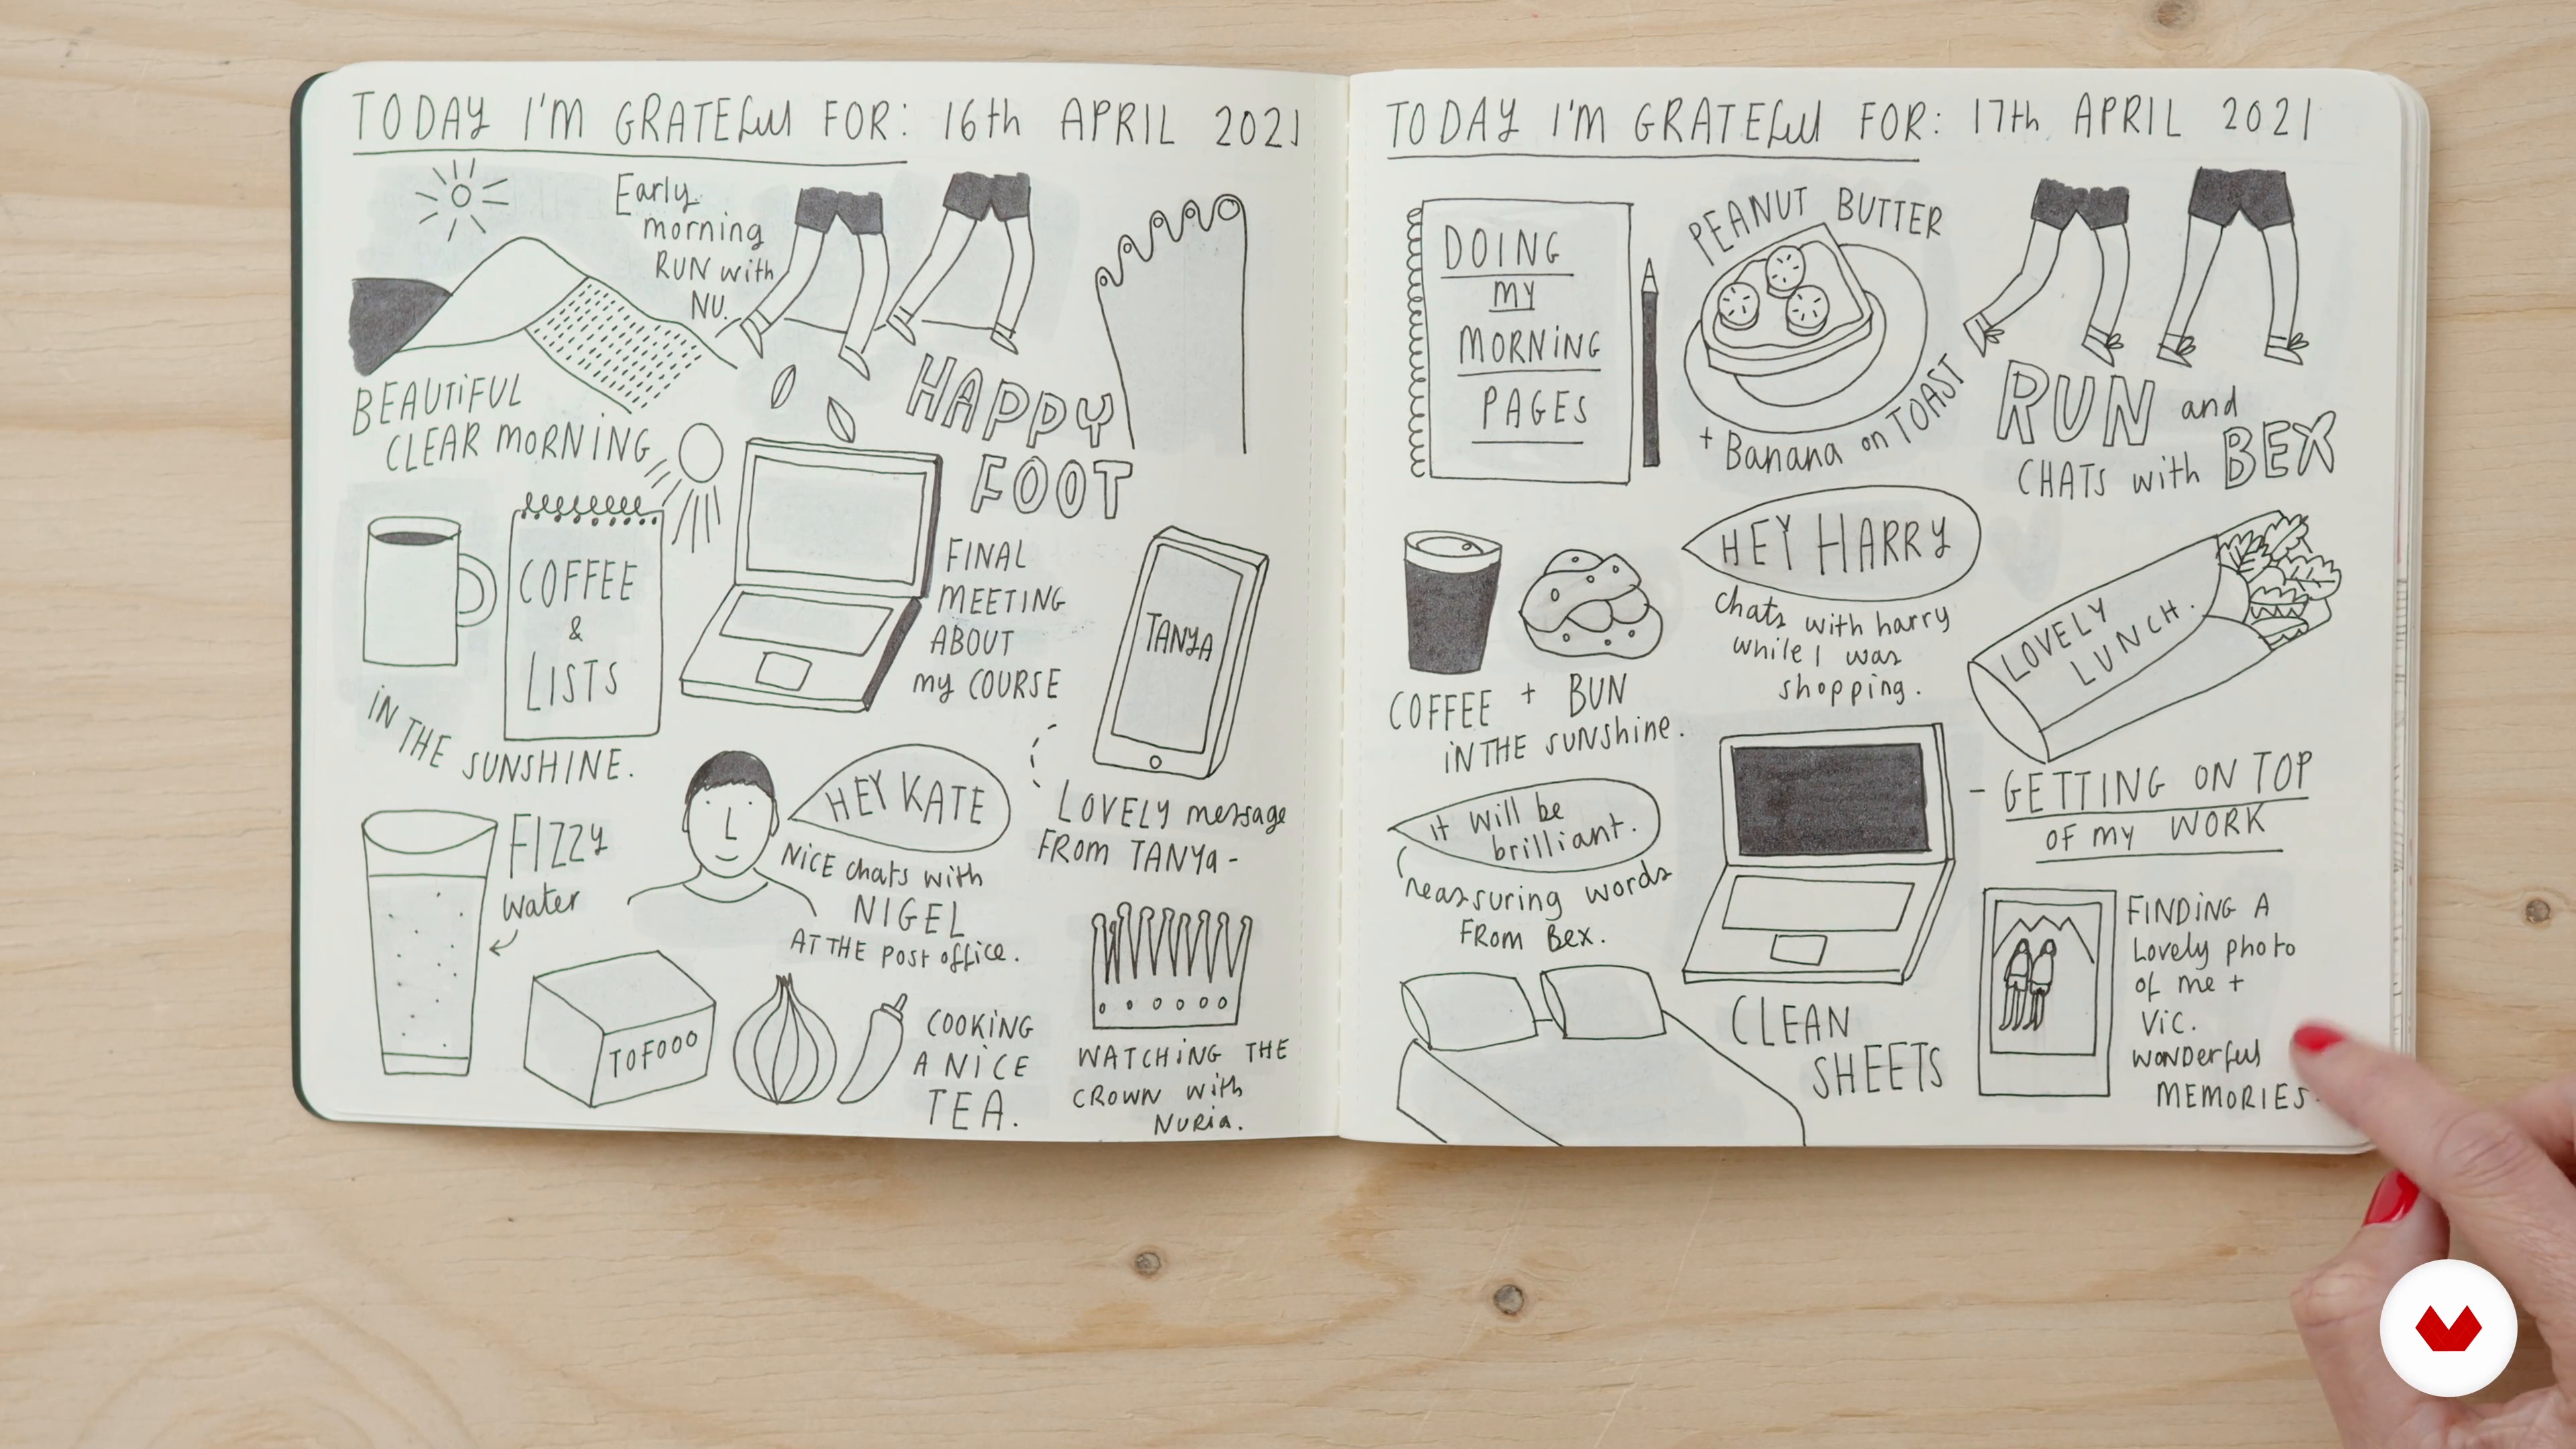 TODAY I'M GRATEFUL FOR: 16th APRIL 2021
Early
morning
RUN with
NU.
BEAUTIFUL
CLEAR MORNING
HAPPY
FOOT
COFFEE
&
LISTS
IN THE SUNSHINE.
FINAL
MEETING
ABOUT
my COURSE
TANYA
LOVELY message
FROM TANYA -
FIZZY
water
HEY KATE
NICE chats with
NIGEL
AT THE post office.
TOFOOO
COOKING
A NICE
TEA.
WATCHING THE
CROWN with
NURIA.
TODAY I'M GRATEFUL FOR: 17th APRIL 2021
DOING
MY
MORNING
PAGES
PEANUT BUTTER
+ Banana on TOAST
RUN and
CHATS with BEX
COFFEE + BUN
IN THE sunshine.
HEY HARRY
chats with harry
while I was
shopping.
LOVELY
LUNCH.
it will be
brilliant.
reassuring words
FROM Bex.
- GETTING ON TOP
OF my WORK
CLEAN
SHEETS
FINDING A
Lovely photo
of me +
VIC.
WONDERFUL
MEMORIES.